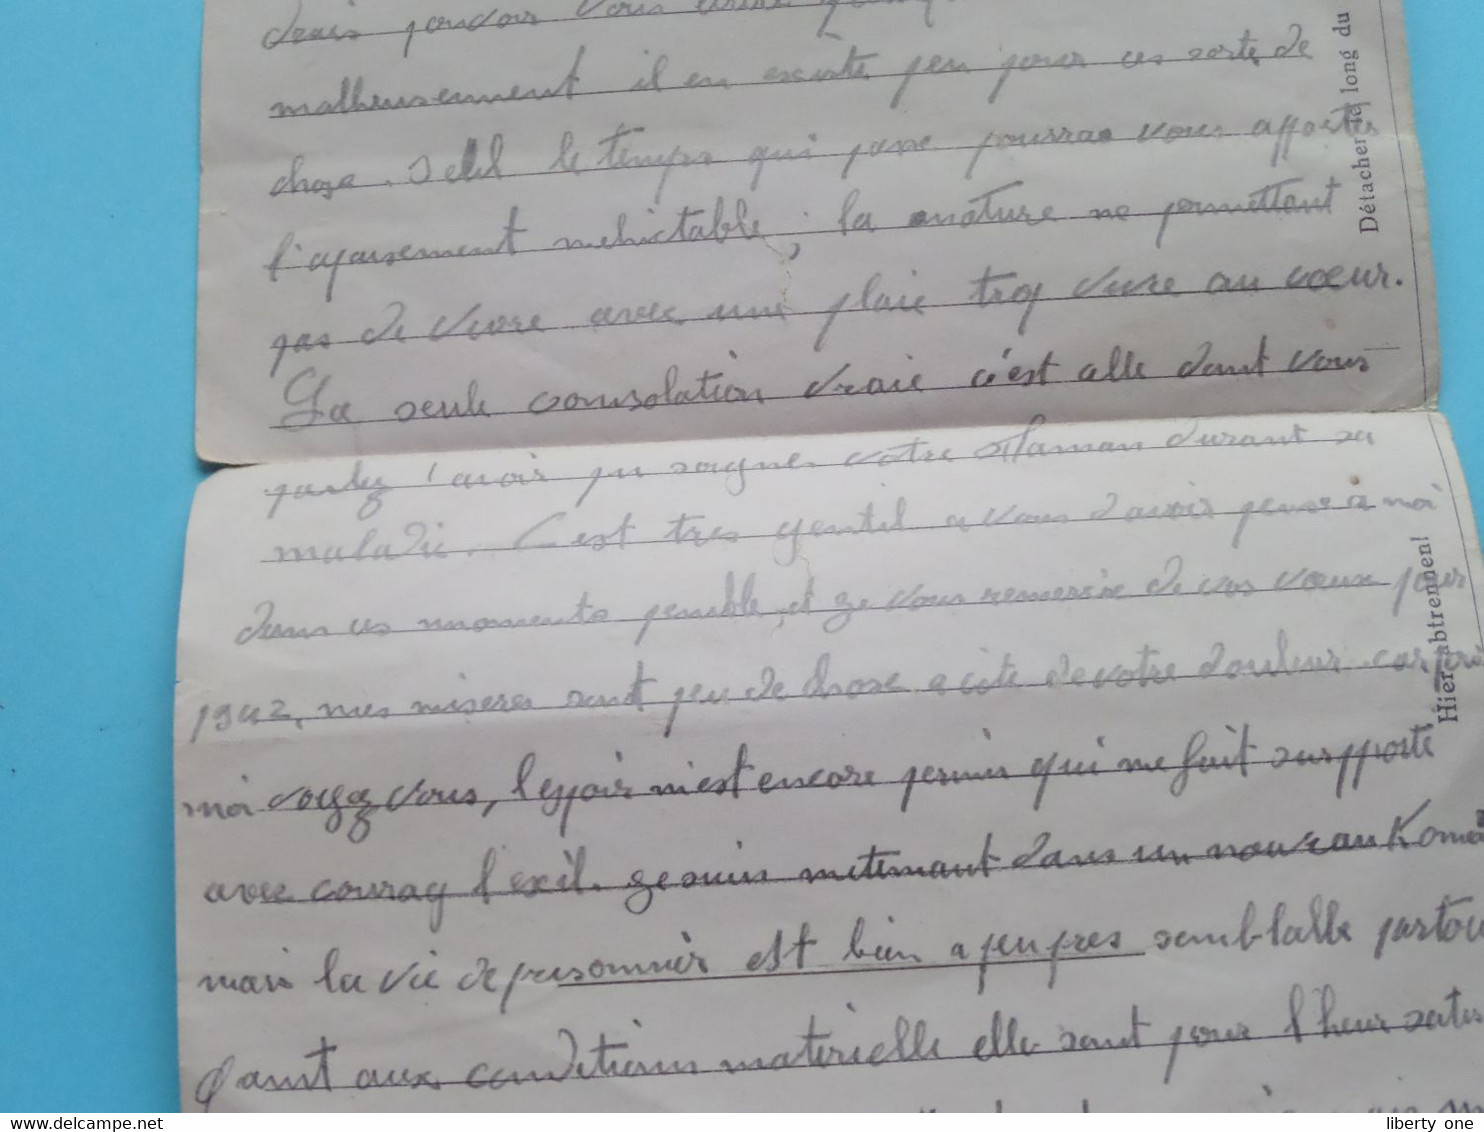 drais pouvoir vous
malheureusement il en existe peu pour ces sorte de
chose. Seul le temps qui passe pourra vous apporter
l'apaisement inelictable, la nature ne permettant
pas de vivre avec une plaie trop vive au coeur.
La seule consolation vraie c'est celle dont vous
parlez l'avoir pu soigner votre Maman durant sa
maladie. C'est tres gentil a vous d'avoir pensé a moi
dans ces moments penible, et je vous remercie de vos voeux pour
1942, mes miseres sont peu de chose a coté de votre douleur. car
moi voyez vous, l'espoir m'est encore permis qui me fait supporté
avec courag l'exil. je suis mctenant dans un nouveau
mais la vie de prisonnier est bien a peu pres semblable partou
Qant aux conditions matérielle elle sont pour l'heur
Détacher le long du
Hier abtrennen!
liberty one